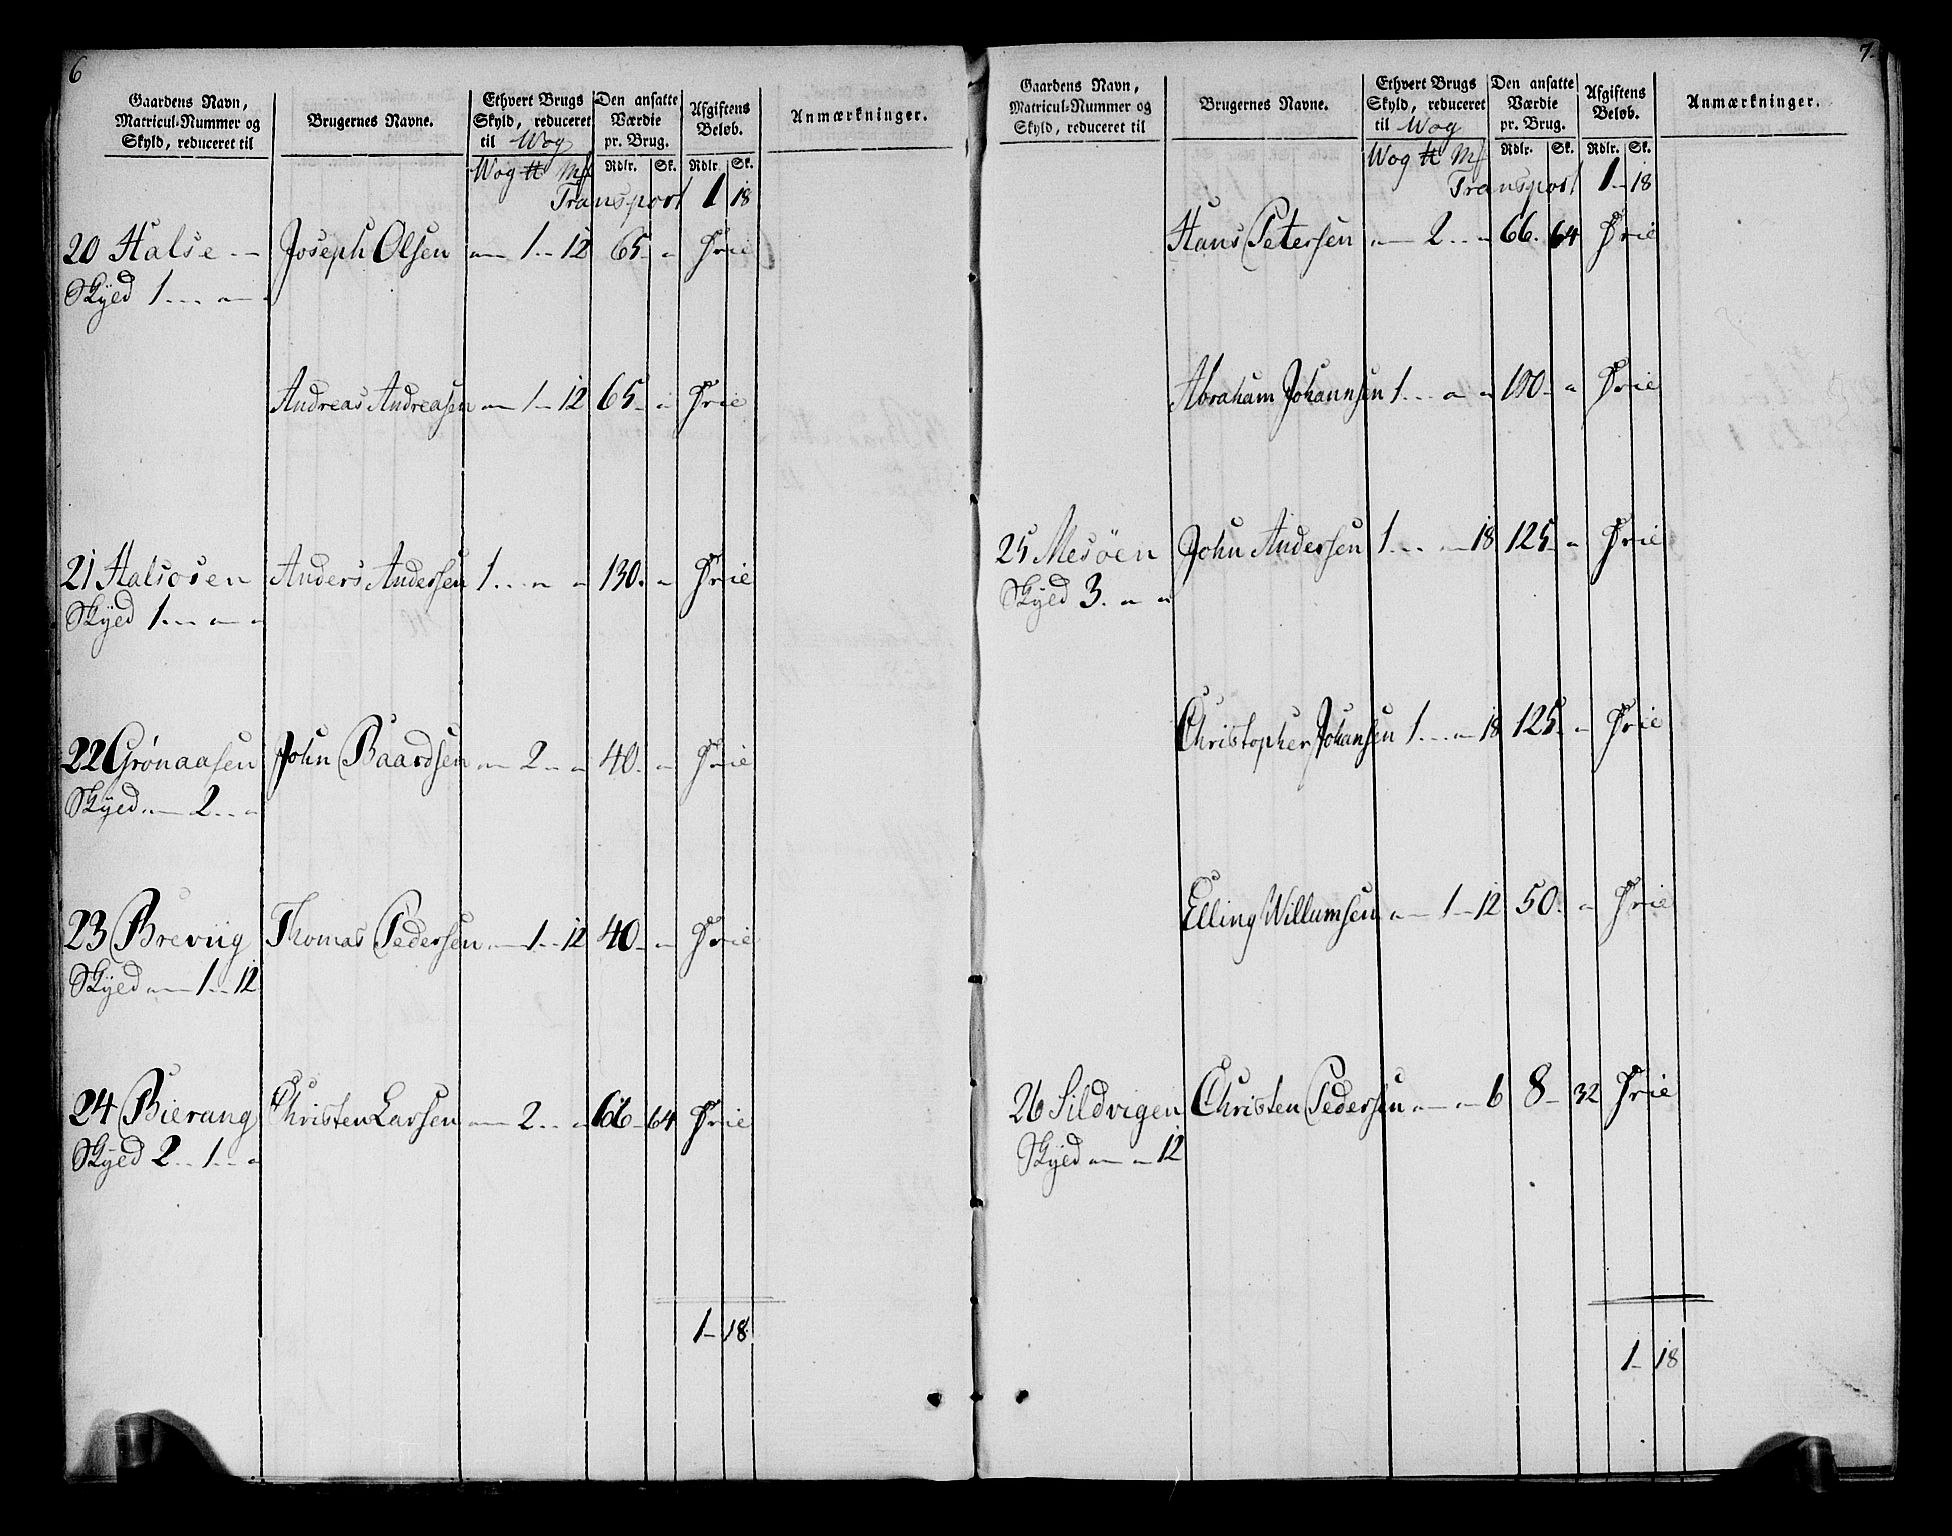 6
Gaardens Navn, Matricul-Nummer og Skyld, reduceret til | Brugernes Navne. | Ethvert Brugs Skyld, reduceret til Wog | Den ansatte Værdie pr. Brug. | Afgiftens Beløb. | Anmærkninger.
Wog ℔ Mk | Rdlr. Sk. | Rdlr. Sk.
Transport 1 18
20 Halse -- Joseph Olsen — 1 -- 12 65. — Frie
Skyed 1 --- —
Andreas Andreasen — 1 - 12 65. — Frie
21 Halsosen Anders Andersen 1 --- — — 130. — Frie
Skyed 1 --- — —
22 Grønaasen John Baardsen — 2 -- — 40. — Frie
Skyed — 2 -- —
23 Brevig Thomas Pedersen — 1 -- 12 40 — Frie
Skyed — 1 -- 12
24 Bierang Christen Larsen — 2 -- — 66 - 64 Frie
Skyed 2 -- 1 -- —
1 - 18
7
Gaardens Navn, Matricul-Nummer og Skyld, reduceret til | Brugernes Navne. | Ethvert Brugs Skyld, reduceret til Wog | Den ansatte Værdie pr. Brug. | Afgiftens Beløb. | Anmærkninger.
Wog ℔ Mk | Rdlr. Sk. | Rdlr. Sk.
Transport 1 - 18
Hans Petersen — 2 -- — 66. 64 Frie
Abraham Johannsen 1 --- — — 100 - — Frie
25 Mesøen John Andersen 1 --- — 18 125 - — Frie
Skyed 3. — —
Christopher Johansen 1 --- — 18 125 - — Frie
Elling Willumsen — 1 - 12 50. — Frie
26 Sildvigen Christen Pedersen — — 6 8 - 32 Frie
Skyed — — 12
1 - 18